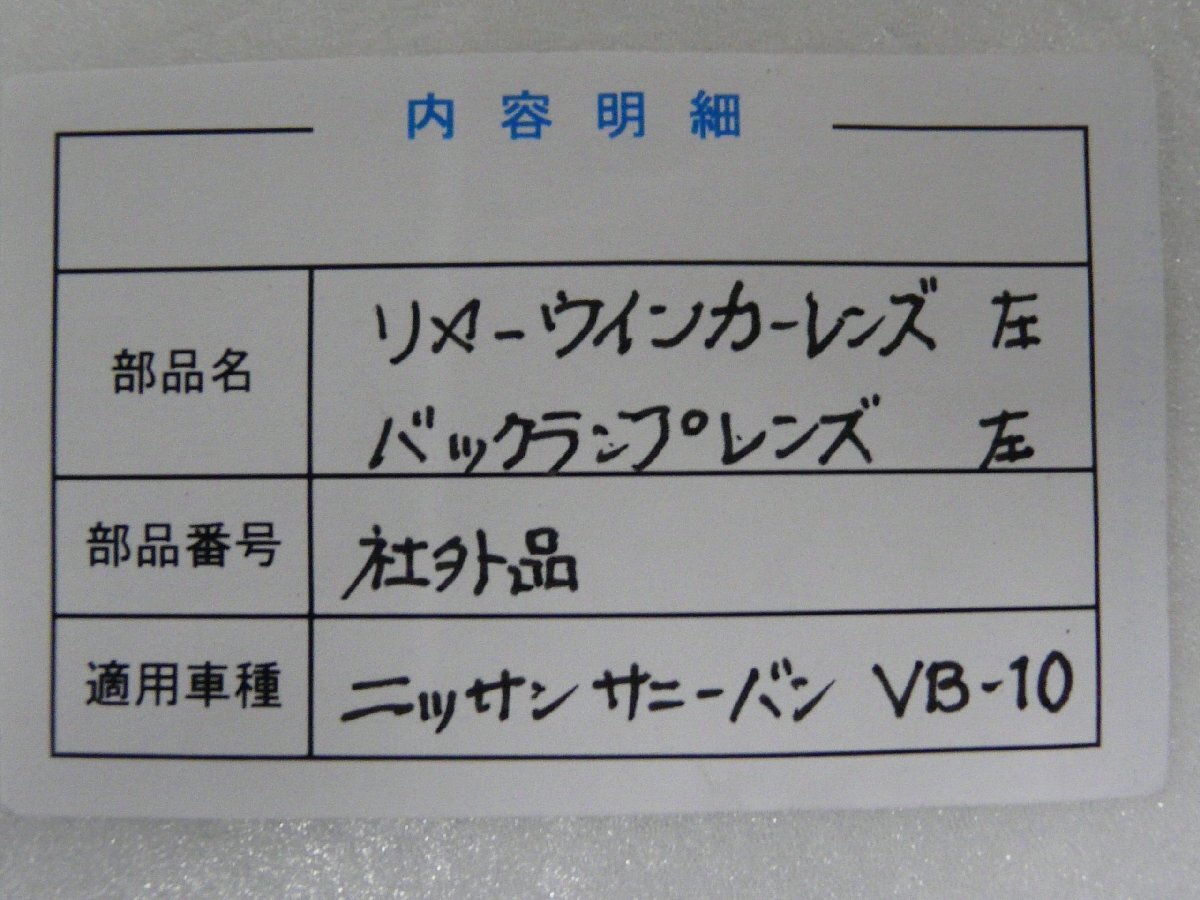 内容明細
部品名
リヤーウインカーレンズ 左
バックランプレンズ 左
部品番号 社外品
適用車種 ニッサン サニーバン VB-10